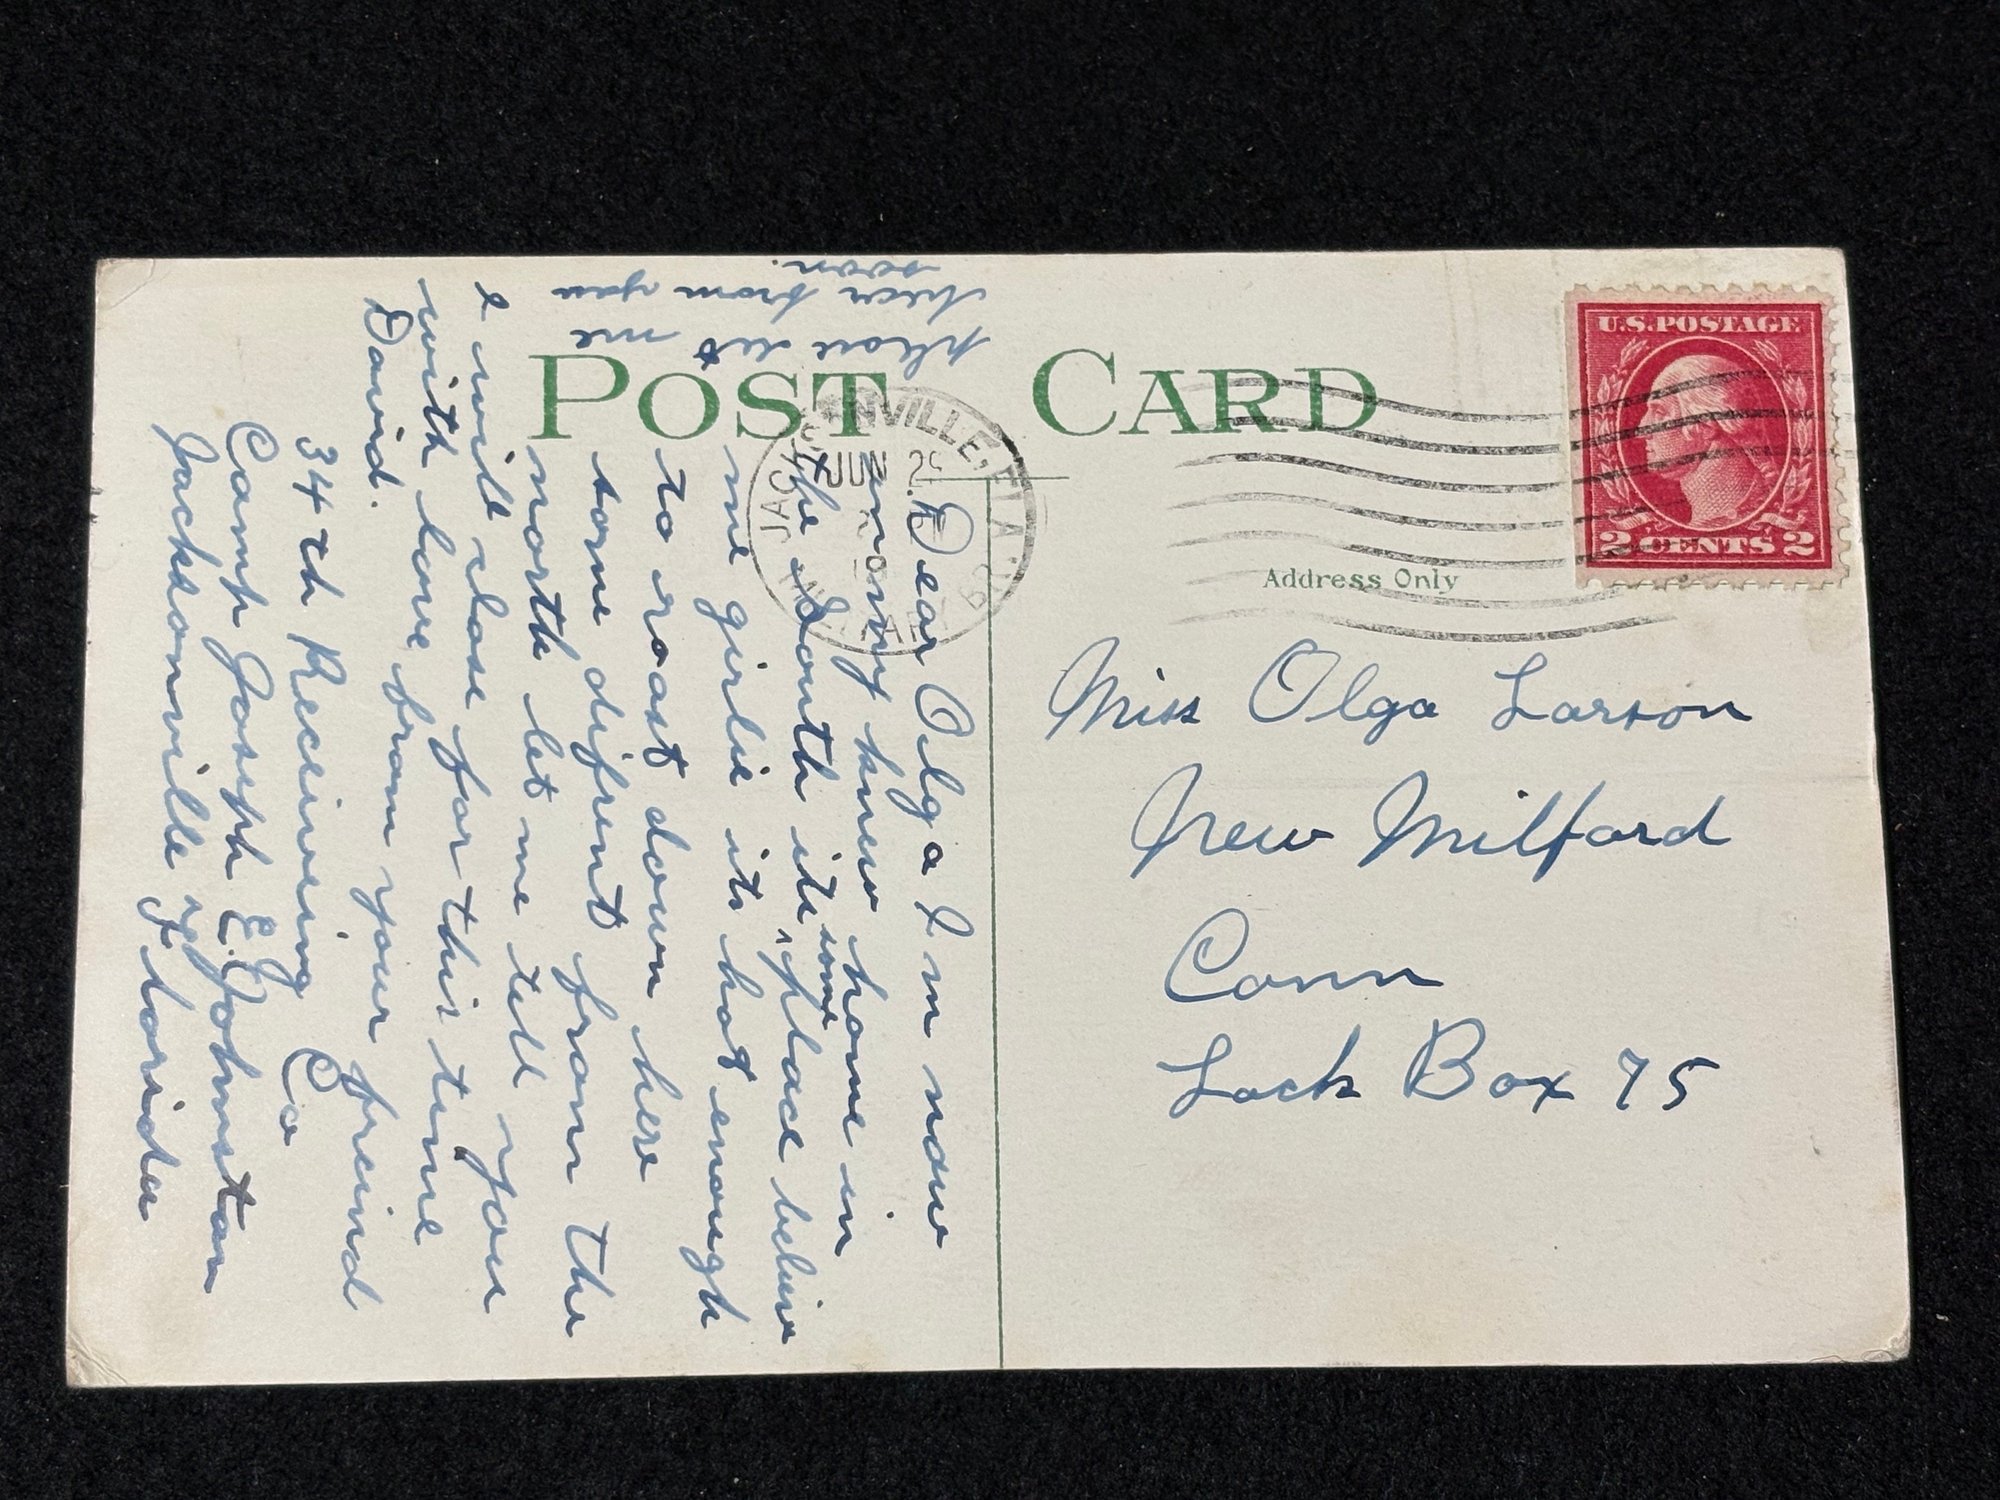 POST CARD
JACKSONVILLE, FLA.
JUN 29
MILITARY
U.S. POSTAGE
2 CENTS 2
Address Only
Miss Olga Larson
New Milford
Conn
Lock Box 75
Dear Olga I m now
in my knew home in
the South its some place belive
me girlie its hot enough
to roast down here
some difrent from the
north let me tell you
I will close for this time
with love from your freind
David.
34th Receiving Co
Camp Joseph E. Johnston
Jacksonville Florida
please let me
hear from you
soon.